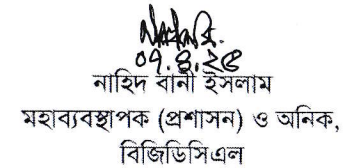 ০৭.৪.২৫
নাহিদ বানী ইসলাম
মহাব্যবস্থাপক (প্রশাসন) ও অনিক,
বিজিডিসিএল